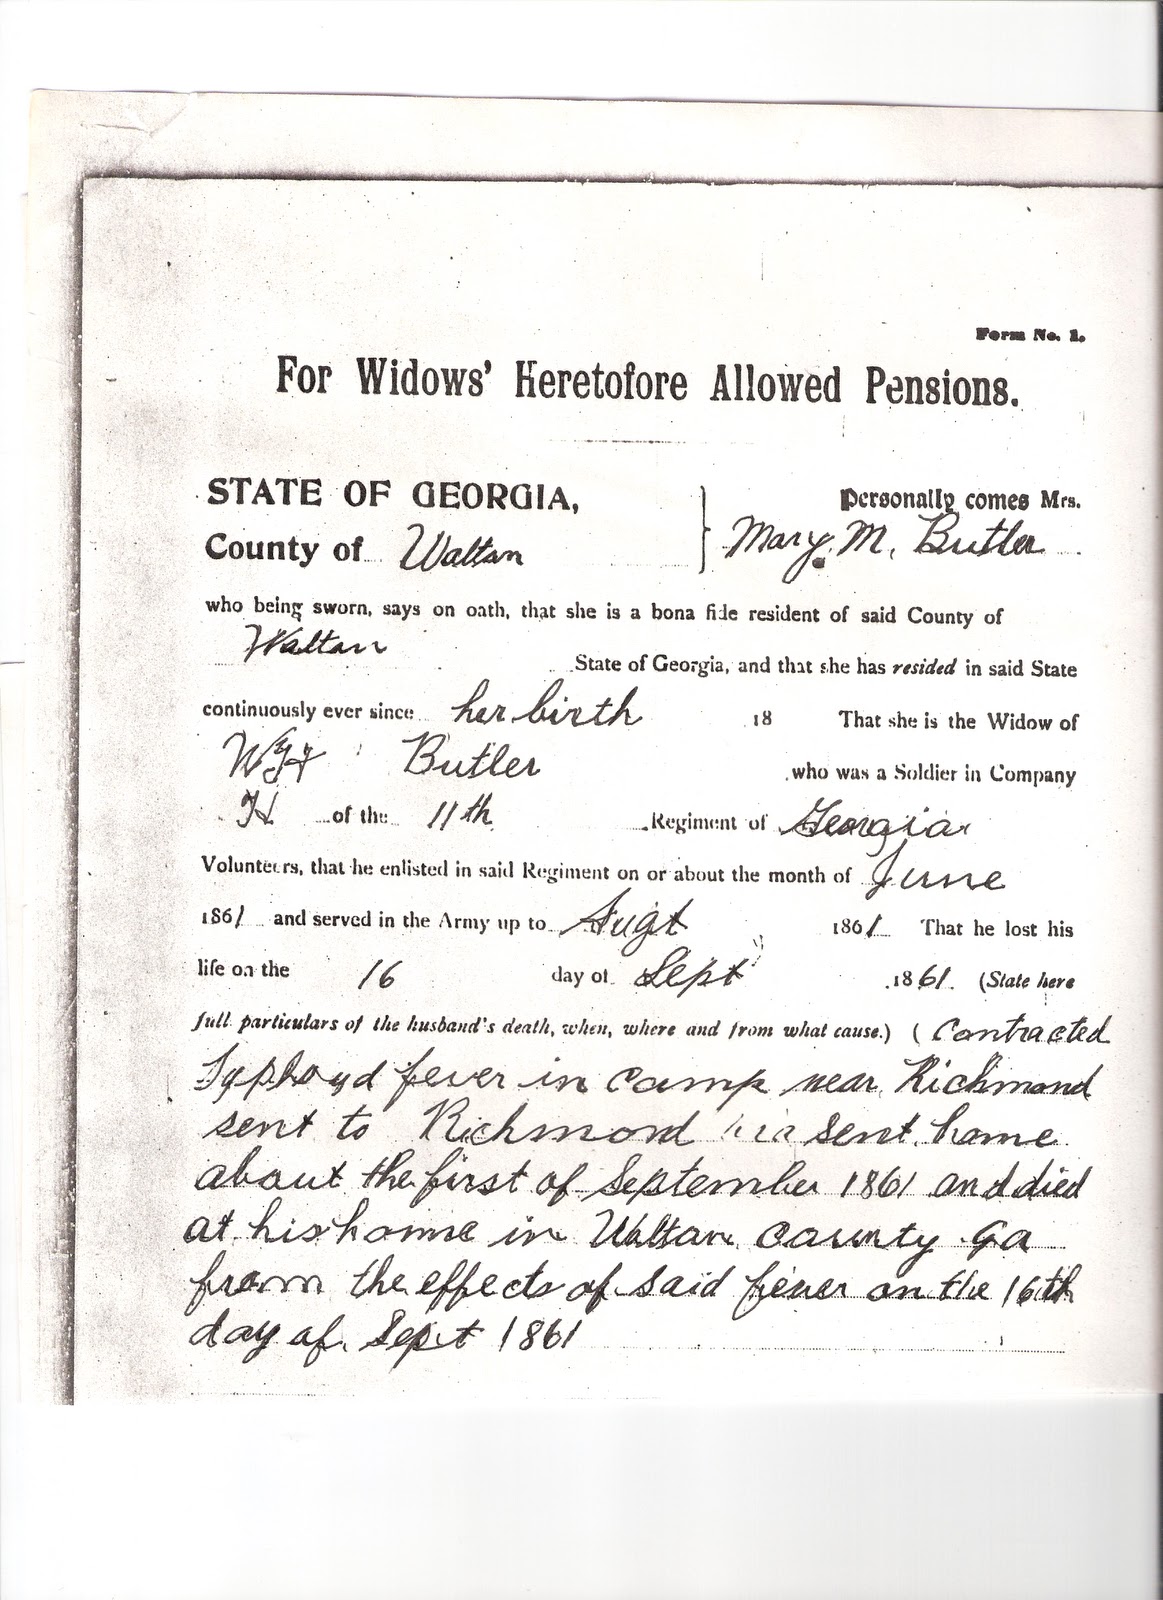 Form No. 1.
For Widows' Heretofore Allowed Pensions.
STATE OF GEORGIA,
County of Waltan
Personally comes Mrs.
Mary. M. Butler
who being sworn, says on oath, that she is a bona fide resident of said County of
Waltan State of Georgia, and that she has resided in said State
continuously ever since her birth 18 That she is the Widow of
Butler who was a Soldier in Company
H of the 11th Regiment of Georgia
Volunteers, that he enlisted in said Regiment on or about the month of June
1861 and served in the Army up to Augt 1861 That he lost his
life on the 16 day of Sept 1861. (State here
full particulars of the husband's death, when, where and from what cause.) (Contracted
Typhoyd fever in camp near Richmond
sent to Richmond sent home
about the first of September 1861 and died
at his home in Waltan county Ga
from the effects of said fever on the 16th
day of Sept 1861